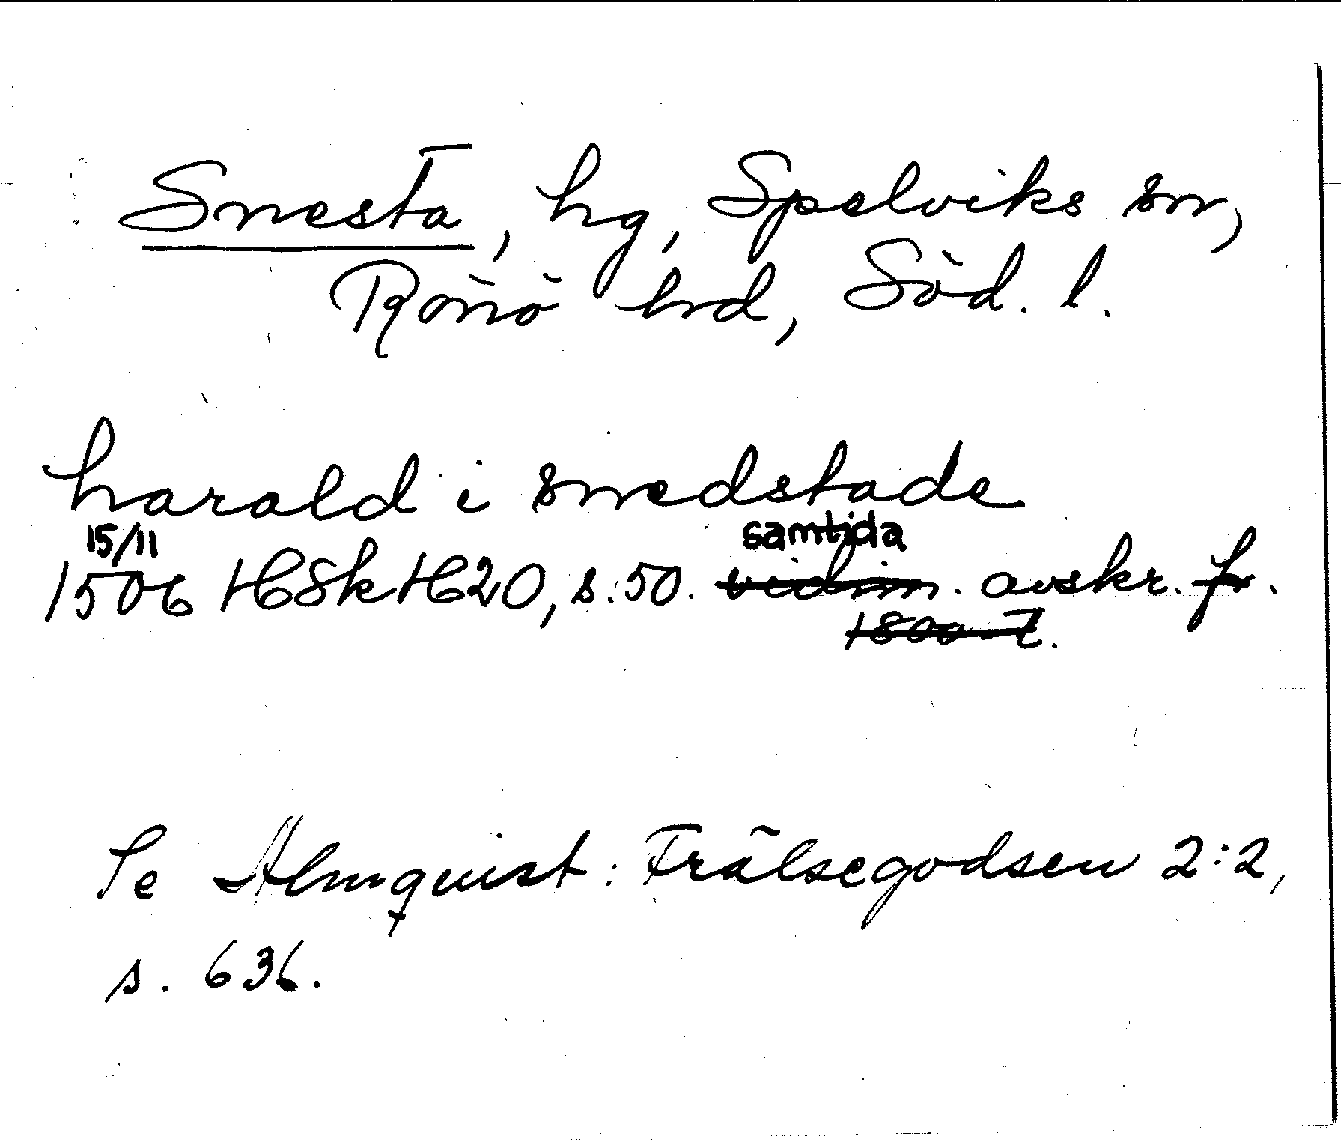 Snesta, hg, Spelviks sn,
Rönö hrd, Söd. l.
harald i smedstade
15/11 samtida
1506 HSkH20, s. 50. vidim. avskr. fr.
1800-t.
Se Almquist: Frälsegodsen 2:2,
s. 636.